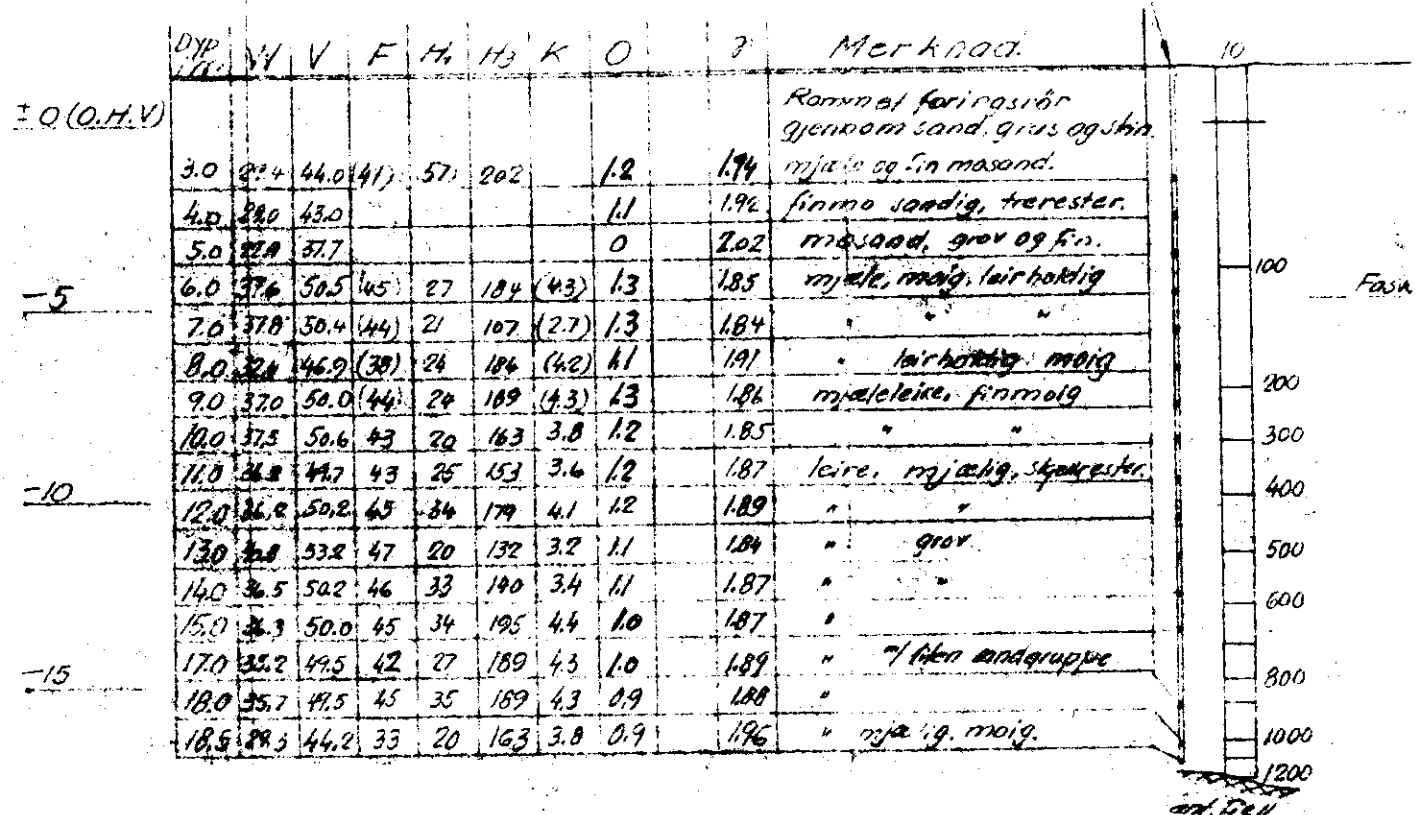 Dyp W V F H₁ H₃ K O γ Merknad. 10
± 0 (O.H.V)
Rammet foringsrör
gjennom sand, grus og stin.
3.0 44.0 (41) 57 202 1.2 1.94 mjæle og fin mosand.
4.0 29.0 43.0 1.1 1.92 finmo sandig, trerester.
5.0 37.7 0 2.02 mosand, grov og fin.
100
-5 6.0 37.6 50.5 (45) 27 184 (4.3) 1.3 1.85 mjæle, moig, leirholdig Fask
7.0 37.8 50.4 (44) 21 107 (2.7) 1.3 1.84 " " "
8.0 46.9 (38) 24 184 (4.2) 1.1 1.91 " leirholdig moig
200
9.0 37.0 50.0 (44) 24 189 (4.3) 1.3 1.86 mjæleleire, finmoig
10.0 37.5 50.6 43 20 163 3.8 1.2 1.85 " " 300
11.0 49.7 43 25 153 3.6 1.2 1.87 leire, mjælig, skjellrester.
-10 12.0 36.2 50.2 45 34 179 4.1 1.2 1.89 " " 400
13.0 53.2 47 20 132 3.2 1.1 1.84 " grov 500
14.0 36.5 50.2 46 33 140 3.4 1.1 1.87 " "
600
15.0 36.3 50.0 45 34 195 4.4 1.0 1.87 "
-15 17.0 35.2 49.5 42 27 189 4.3 1.0 1.89 " m/ liten sandgruppe
800
18.0 35.7 49.5 45 35 189 4.3 0.9 1.88 "
18.5 29.3 44.2 33 20 163 3.8 0.9 1.96 " mjælig. moig. 1000
1200
ant. fjell